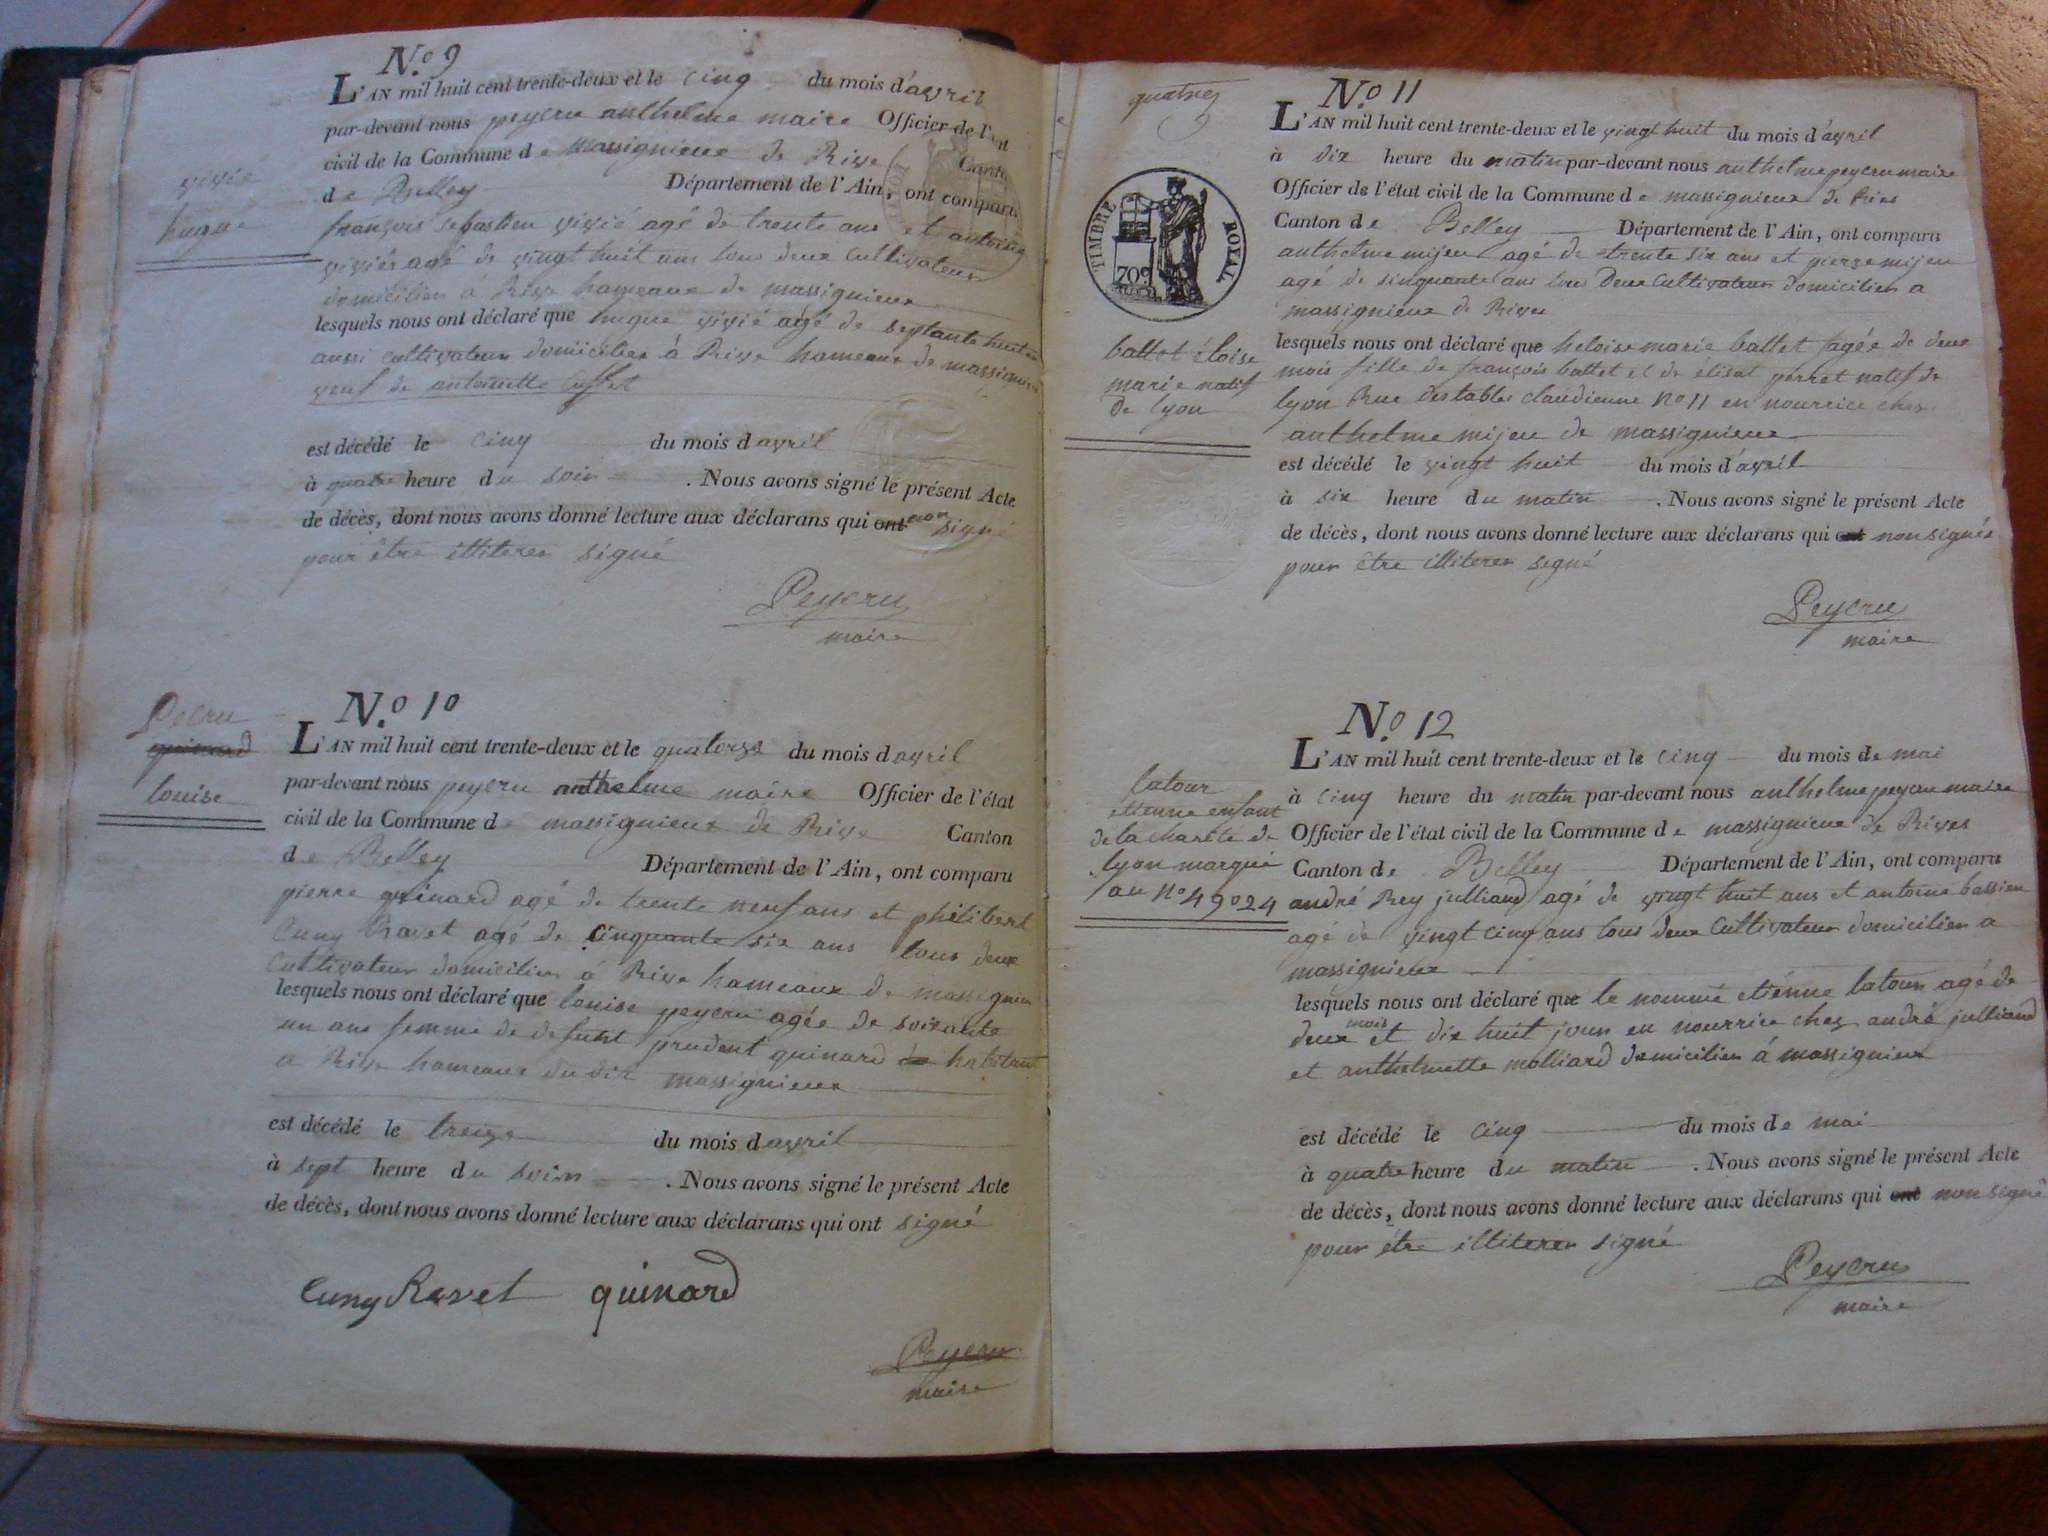 N.o 9
L'AN mil huit cent trente-deux et le cinq du mois d'avril
par-devant nous peycru anthelme maire Officier de l'état
civil de la Commune de massignieux de Rive Canton
de Belley Département de l'Ain, ont comparu
françois sebastien vivié agé de trente ans et antoine
viviés agé de vingt huit ans tous deux cultivateurs
domiciliers á Rive hameaux de massignieux
lesquels nous ont déclaré que hugue vivié agé de septante huit ans
aussi cultivateur domicilier á Rive hameaux de massignieux
veuf de antoinette
est décédé le cinq du mois d avril
à quatre heure du soir . Nous avons signé le présent Acte
de décès, dont nous avons donné lecture aux déclarans qui ont non signé
pour être illiterer signé
Peycru
maire
vivié
hugue
N.o 10
L'AN mil huit cent trente-deux et le quatorze du mois d avril
par-devant nous peycru anthelme maire Officier de l'état
civil de la Commune de massignieux de Rive Canton
de Belley Département de l'Ain, ont comparu
pierre quinard agé de trente neuf ans et philibert
Cuny Ravet agé de cinquante six ans tous deux
Cultivateur domicilier á Rive hameaux de massignieu
lesquels nous ont déclaré que louise peycru agée de soixante
un ans femme de defunt prudent quinard habitant
a Rive hameaux du dit massignieux
est décédé le treize du mois d avril
à sept heure du soir . Nous avons signé le présent Acte
de décès, dont nous avons donné lecture aux déclarans qui ont signé
Cuny Ravet quinard
Peycru
maire
Pecru
quinard
louise
quatre
TIMBRE ROYAL
70c
N.o 11
L'AN mil huit cent trente-deux et le vingt huit du mois d'avril
à dix heure du matin par-devant nous anthelme peycru maire
Officier de l'état civil de la Commune de massignieux de Rives
Canton de Belley Département de l'Ain, ont comparu
anthelme mijeu agé de trente six ans et pierre mijeu
agé de sinquante ans tous deux Cultivateur domicilier a
massignieux de Rives
lesquels nous ont déclaré que heloise marie battet agée de deux
mois fille de françois battet et de élisat perret natif de
lyon Rue destables claudienne No 11 en nourrice chez
anthelme mijeu de massignieux
est décédé le vingt huit du mois d'avril
à six heure du matin . Nous avons signé le présent Acte
de décès, dont nous avons donné lecture aux déclarans qui ont non signés
pour être illiterer signé
Peycru
maire
battet éloise
marie natif
de lyon
N.o 12
L'AN mil huit cent trente-deux et le cinq du mois de mai
à cinq heure du matin par-devant nous anthelme peycru maire
Officier de l'état civil de la Commune de massignieux de Rives
Canton de Belley Département de l'Ain, ont comparu
andré Rey julliand agé de vingt huit ans et antoine bassieu
agé de vingt cinq ans tous deux Cultivateur domicilier a
massignieux
lesquels nous ont déclaré que le nommé etiénne latour agé de
deux mois et dix huit jours en nourrice chez andré julliand
et anthelmette molliard domicilier á massignieux
est décédé le cinq du mois de mai
à quatre heure du matin . Nous avons signé le présent Acte
de décès, dont nous avons donné lecture aux déclarans qui ont non signé
pour être illiterer signé
Peycru
maire
latour
etienne enfant
de la charite de
lyon marqué
au No 49024